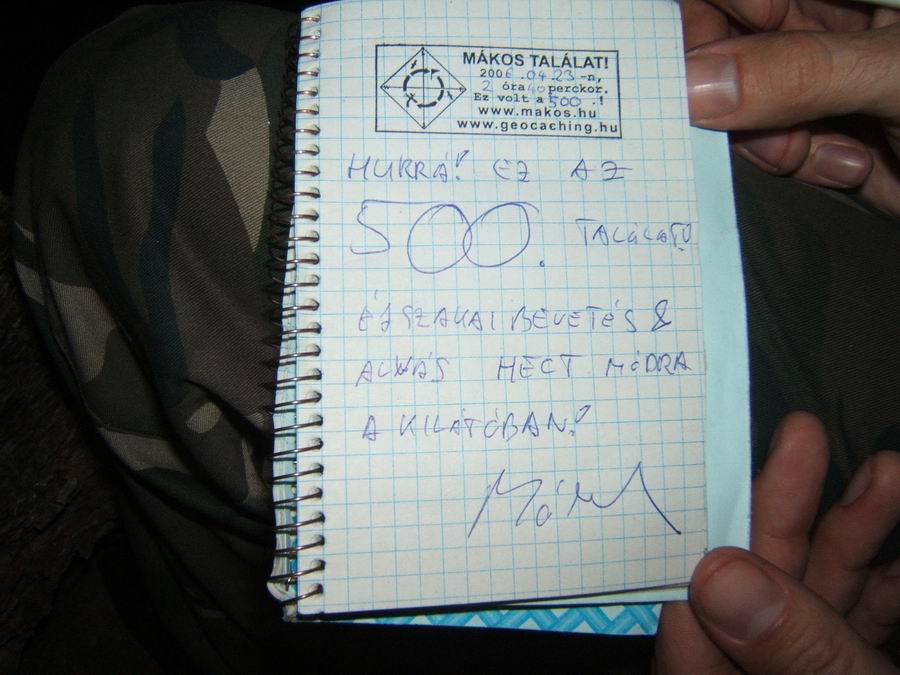 MÁKOS TALÁLAT!
2006.04.23-n,
2 óra 40 perckor.
Ez volt a 500.!
www.makos.hu
www.geocaching.hu
HURRÁ! EZ AZ
500. TALÁLAT!
ÉJSZAKAI BEVETÉS &
ALVÁS HECT MÓDRA
A KILÁTÓBAN!